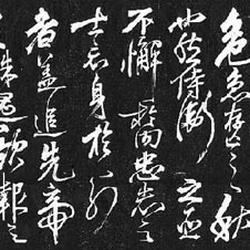 危急存亡之秋
也然侍衛之臣
不懈於內忠志之
士忘身於外
者蓋追先帝
之殊遇欲報之